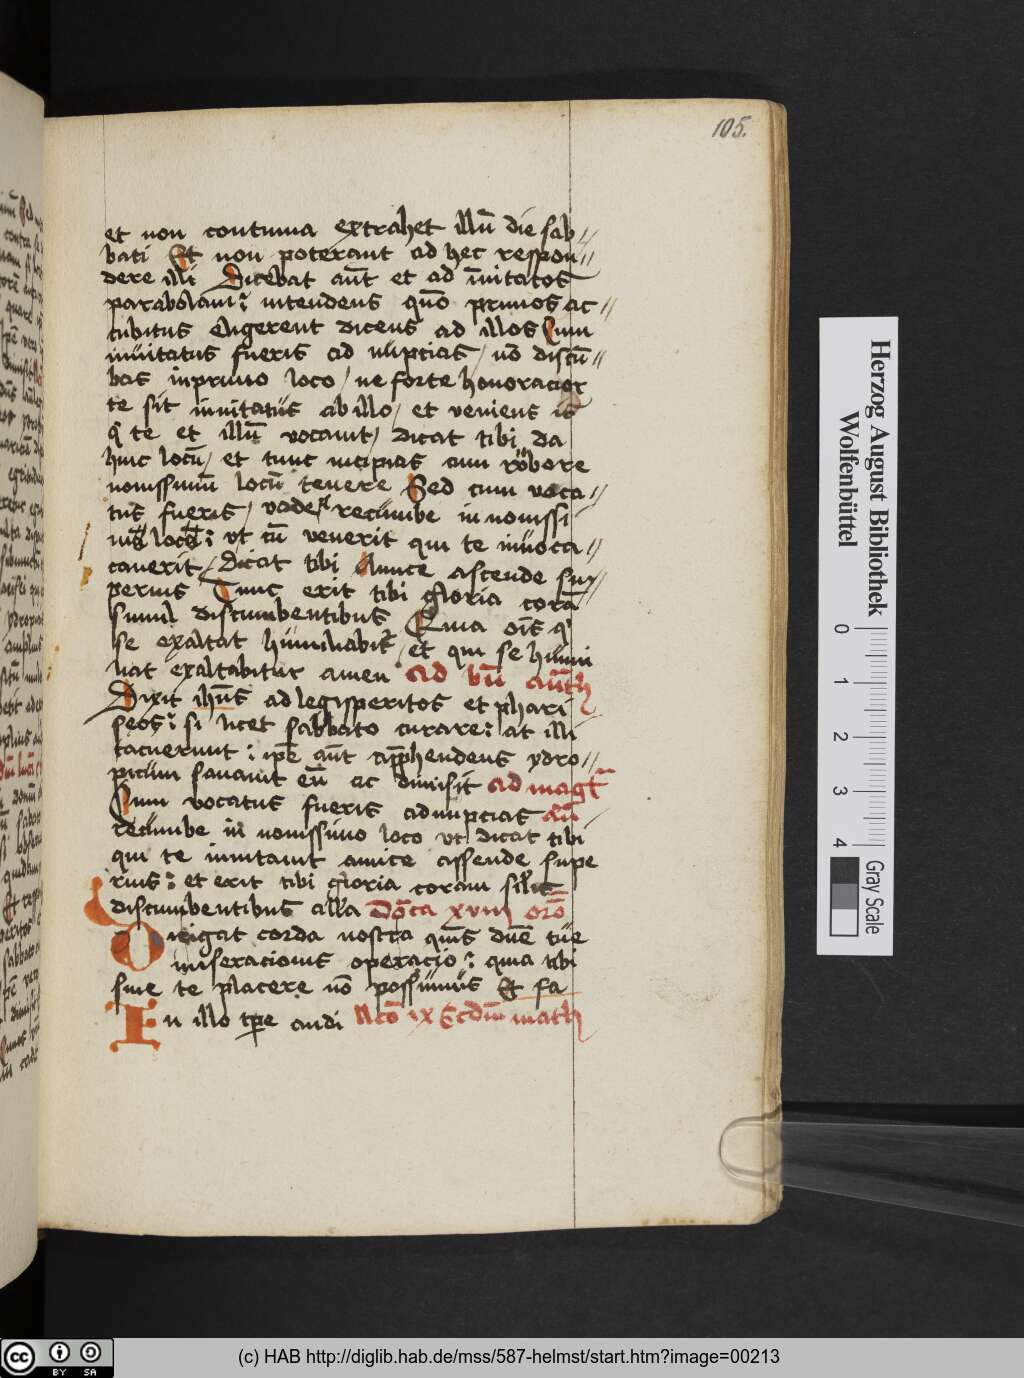 105.
et non continua extrahet illū die sab//
bati Et non poterant ad hec respon//
dere illi Dicebat aūt et ad īuitatos
parabolam: intendens quō primos ac//
cubitus eligerent dicens ad illos Cum
inuitatus fueris ad nupcias / nō discū//
bas inprimo loco / ne forte honoracior
te sit inuitatus ab illo / et veniens is
q te et illū vocauit / dicat tibi da
huic locū / et tunc incipias cum robore
nouissimum locū tenere Sed cum voca//
tus fueris / vade recumbe in nouissi
loco: vt cū venerit qui te inuoca//
cauerit / Dicat tibi Amice ascende sup//
perius Tunc erit tibi gloria corā//
simul discumbentibus Quia oīs q
se exaltat humiliabit / et qui se humi
liat exaltabitur amen Ad bn̄ Aūth
Dixit ihūs ad legisperitos et phari
seos: si licet sabbato curare: at illi
tacuerunt: ipē aūt apphendens ydro//
picum sanauit eū ac dimisit Ad magt
Cum vocatus fueris ad nupcias Aū
recumbe in nouissimo loco vt dicat tibi
qui te inuitauit amice assende supe
rius: et erit tibi gloria coram sil'it
discumbentibus alla Dōca xviij orō
Dirigat corda nostra quīs dnē tue
miseracionis operacio: quia tibi
sine te placere nō possumus Et fa
In illo tpe audi lcō ix Scdm math
Herzog August Bibliothek
Wolfenbüttel
0 1 2 3 4
Gray Scale
cc BY SA
(c) HAB http://diglib.hab.de/mss/587-helmst/start.htm?image=00213